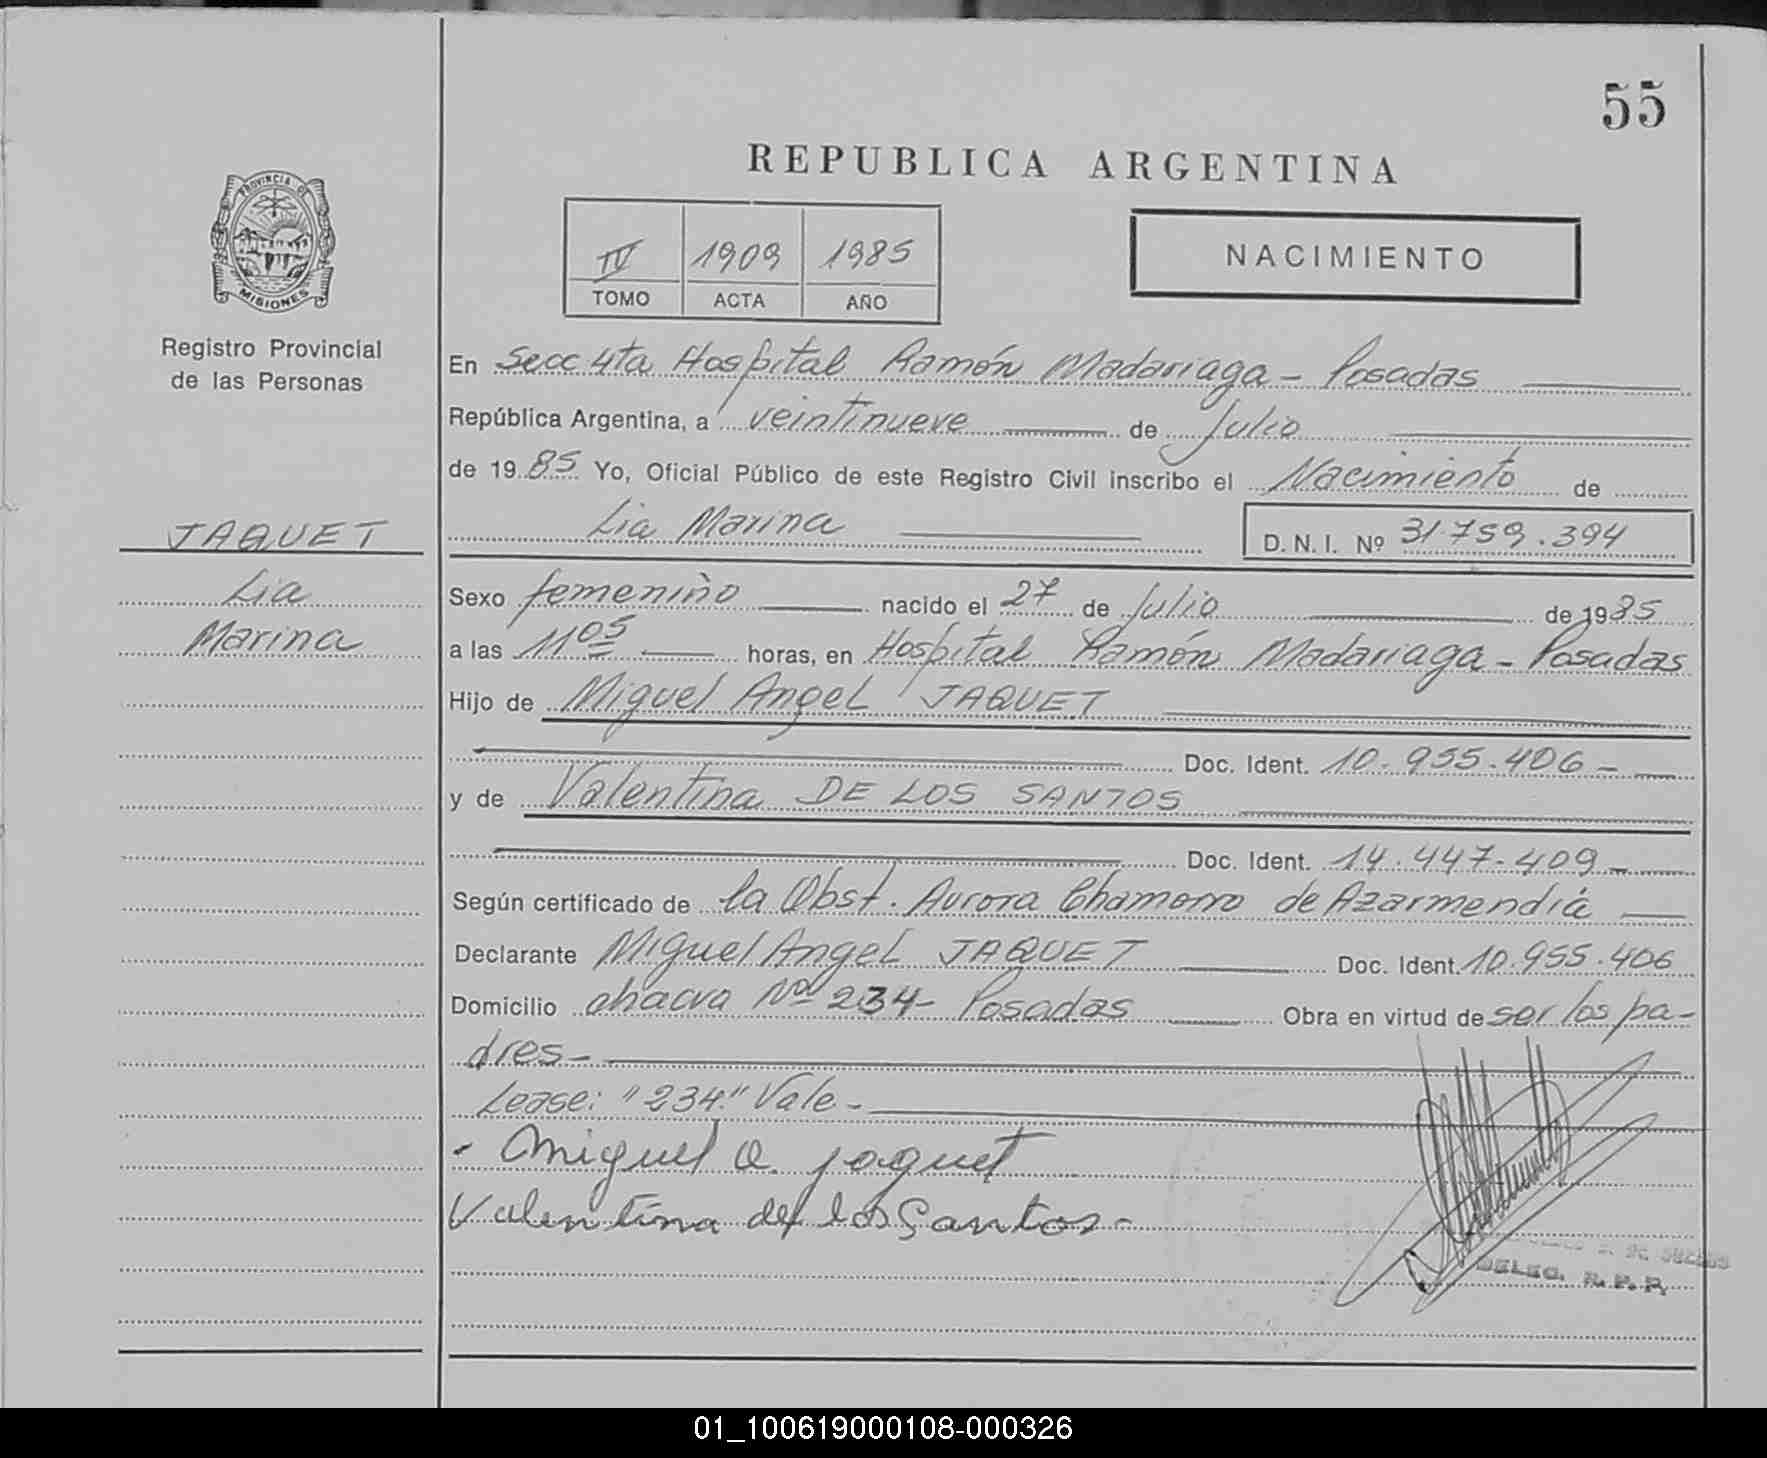 55
REPUBLICA ARGENTINA
PROVINCIA DE
MISIONES
Registro Provincial
de las Personas
IV 1909 1985
TOMO ACTA AÑO
NACIMIENTO
En Secc 4ta Hospital Ramón Madariaga - Posadas
República Argentina, a veintinueve de Julio
de 19 85 Yo, Oficial Público de este Registro Civil inscribo el Nacimiento de
Lia Marina D. N. I. Nº 31.759.394
JAQUET
Lia
Marina
Sexo femenino nacido el 27 de Julio de 1985
a las 11 05 horas, en Hospital Ramón Madariaga - Posadas
Hijo de Miguel Angel JAQUET
Doc. Ident. 10.955.406 -
y de Valentina DE LOS SANTOS
Doc. Ident. 14.447.409 -
Según certificado de la Obst. Aurora Chamorro de Azarmendia
Declarante Miguel Angel JAQUET Doc. Ident. 10.955.406
Domicilio chacra Nº 234 - Posadas Obra en virtud de ser los pa-
dres -
Lease: "234" Vale -
Miguel A. Jaquet
Valentina de los Santos -
DELEG. R. P. P.
01_100619000108-000326